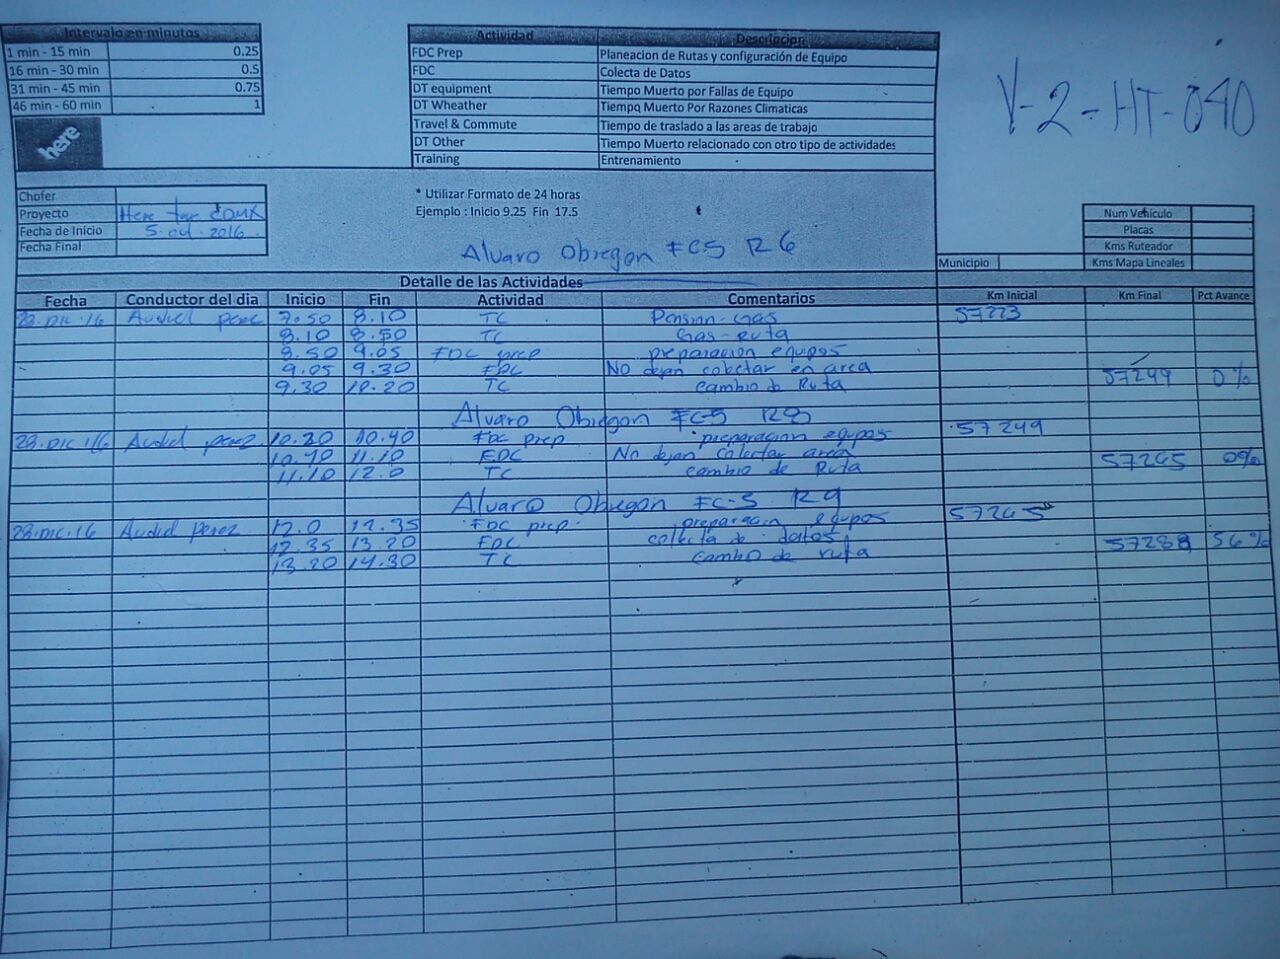 Intervalo en minutos
1 min - 15 min 0.25
16 min - 30 min 0.5
31 min - 45 min 0.75
46 min - 60 min 1
here
Actividad Descripcion
FDC Prep Planeacion de Rutas y configuración de Equipo
FDC Colecta de Datos
DT equipment Tiempo Muerto por Fallas de Equipo
DT Wheather Tiempo Muerto Por Razones Climaticas
Travel & Commute Tiempo de traslado a las areas de trabajo
DT Other Tiempo Muerto relacionado con otro tipo de actividades
Training Entrenamiento
V-2-HT-040
Chofer
Proyecto Here CDMX
Fecha de Inicio 5. oct. 2016.
Fecha Final
* Utilizar Formato de 24 horas
Ejemplo : Inicio 9.25 Fin 17.5
Num Vehículo
Placas
Kms Ruteador
Municipio Kms Mapa Lineales
Alvaro Obregon FC-5 R6
Detalle de las Actividades
Fecha Conductor del dia Inicio Fin Actividad Comentarios Km Inicial Km Final Pct Avance
28.DIC.16 7.50 8.10 TC Pension-Gas 57223
8.10 8.50 TC Gas-Ruta
8.50 9.05 FDC prep preparacion equipos
9.05 9.30 FDC No dejan colectar en area
9.30 10.20 TC cambio de Ruta 57249 0%
Alvaro Obregon FC-5 R8
28.DIC.16 perez 10.20 10.40 FDC prep preparacion equipos 57249
10.40 11.10 FDC No dejan colectar area
11.10 12.0 TC cambio de Ruta 57265 0%
Alvaro Obregon FC-5 R9
28.DIC.16 perez 12.0 12.35 FDC prep. preparacion equipos 57265
12.35 13.20 FDC colecta de datos 57288 56%
13.20 14.30 TC cambio de ruta